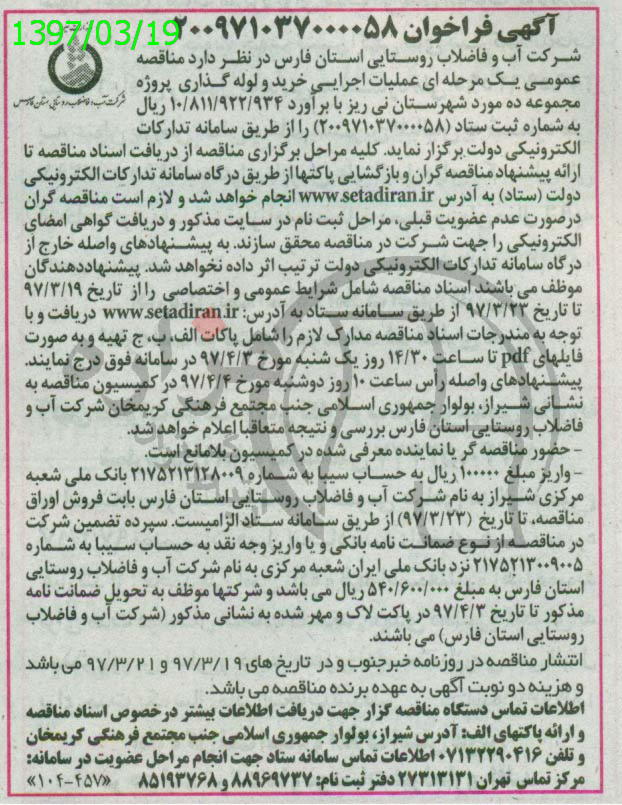 1397/03/19
آگهی فراخوان ۲۰۰۹۷۱۰۳۷۰۰۰۰۵۸
شرکت آب و فاضلاب روستایی استان فارس در نظر دارد مناقصه
عمومی یک مرحله ای عملیات اجرایی خرید و لوله گذاری پروژه
مجموعه ده مورد شهرستان نی ریز با برآورد ۱۰/۸۱۱/۹۲۲/۹۳۴ ریال
شرکت آب و فاضلاب روستایی استان فارس
به شماره ثبت ستاد (۲۰۰۹۷۱۰۳۷۰۰۰۰۵۸) را از طریق سامانه تدارکات
الکترونیکی دولت برگزار نماید. کلیه مراحل برگزاری مناقصه از دریافت اسناد مناقصه تا
ارائه پیشنهاد مناقصه گران و بازگشایی پاکتها از طریق درگاه سامانه تدارکات الکترونیکی
دولت (ستاد) به آدرس www.setadiran.ir انجام خواهد شد و لازم است مناقصه گران
درصورت عدم عضویت قبلی، مراحل ثبت نام در سایت مذکور و دریافت گواهی امضای
الکترونیکی را جهت شرکت در مناقصه محقق سازند. به پیشنهادهای واصله خارج از
درگاه سامانه تدارکات الکترونیکی دولت ترتیب اثر داده نخواهد شد. پیشنهاددهندگان
موظف می باشند اسناد مناقصه شامل شرایط عمومی و اختصاصی را از تاریخ ۹۷/۳/۱۹
تا تاریخ ۹۷/۳/۲۳ از طریق سامانه ستاد به آدرس: www.setadiran.ir دریافت و با
توجه به مندرجات اسناد مناقصه مدارک لازم را شامل پاکات الف، ب، ج تهیه و به صورت
فایلهای pdf تا ساعت ۱۴/۳۰ روز یک شنبه مورخ ۹۷/۴/۳ در سامانه فوق درج نمایند.
پیشنهادهای واصله رأس ساعت ۱۰ روز دوشنبه مورخ ۹۷/۴/۴ در کمیسیون مناقصه به
نشانی شیراز، بولوار جمهوری اسلامی جنب مجتمع فرهنگی کریمخان شرکت آب و
فاضلاب روستایی استان فارس بررسی و نتیجه متعاقبا اعلام خواهد شد.
- حضور مناقصه گر یا نماینده معرفی شده در کمیسیون بلامانع است.
- واریز مبلغ ۱۰۰۰۰۰ ریال به حساب سیبا به شماره ۲۱۷۵۲۱۳۱۲۸۰۰۹ بانک ملی شعبه
مرکزی شیراز به نام شرکت آب و فاضلاب روستایی استان فارس بابت فروش اوراق
مناقصه، تا تاریخ (۹۷/۳/۲۳) از طریق سامانه ستاد الزامیست. سپرده تضمین شرکت
در مناقصه از نوع ضمانت نامه بانکی و یا واریز وجه نقد به حساب سیبا به شماره
۲۱۷۵۲۱۳۰۰۹۰۰۵ نزد بانک ملی ایران شعبه مرکزی به نام شرکت آب و فاضلاب روستایی
استان فارس به مبلغ ۵۴۰/۶۰۰/۰۰۰ ریال می باشد و شرکتها موظف به تحویل ضمانت نامه
مذکور تا تاریخ ۹۷/۴/۳ در پاکت لاک و مهر شده به نشانی مذکور (شرکت آب و فاضلاب
روستایی استان فارس) می باشند.
انتشار مناقصه در روزنامه خبرجنوب و در تاریخ های ۹۷/۳/۱۹ و ۹۷/۳/۲۱ می باشد
و هزینه دو نوبت آگهی به عهده برنده مناقصه می باشد.
اطلاعات تماس دستگاه مناقصه گزار جهت دریافت اطلاعات بیشتر در خصوص اسناد مناقصه
و ارائه پاکتهای الف: آدرس شیراز، بولوار جمهوری اسلامی جنب مجتمع فرهنگی کریمخان
و تلفن ۰۷۱۳۲۲۹۰۴۱۶ اطلاعات تماس سامانه ستاد جهت انجام مراحل عضویت در سامانه:
مرکز تماس تهران ۲۷۳۱۳۱۳۱ دفتر ثبت نام: ۸۸۹۶۹۷۳۷ و ۸۵۱۹۳۷۶۸ «۱۰۴-۴۵۷»